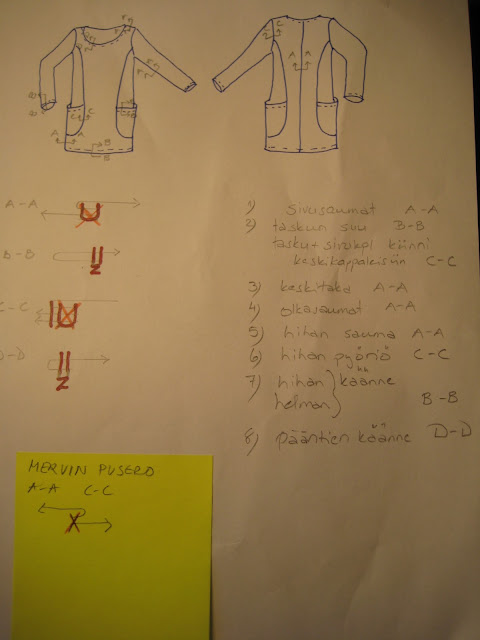 A-A
B-B
C-C
D-D
1) sivusaumat A-A
2) taskun suu B-B
tasku + sivukpl kiinni
keskikappaleisiin C-C
3) keskitaka A-A
4) olkasaumat A-A
5) hihan sauma A-A
6) hihan pyöriö C-C
7) hihan käänne
helman B-B
8) pääntien käänne D-D
MERVIN PUSERO
A-A C-C